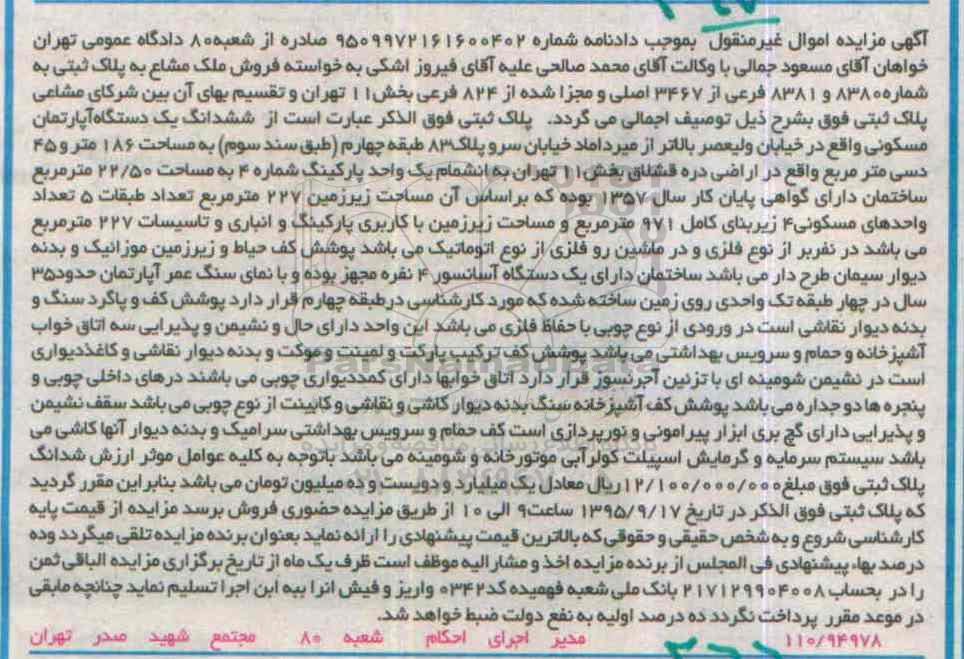 آگهی مزایده اموال غیرمنقول بموجب دادنامه شماره ۹۵۰۹۹۷۲۱۶۱۶۰۰۴۰۲ صادره از شعبه۸۰ دادگاه عمومی تهران
خواهان آقای مسعود جمالی با وکالت آقای محمد صالحی علیه آقای فیروز اشکی به خواسته فروش ملک مشاع به پلاک ثبتی به
شماره۸۳۸۰ و ۸۳۸۱ فرعی از ۳۴۶۷ اصلی و مجزا شده از ۸۲۴ فرعی بخش۱۱ تهران و تقسیم بهای آن بین شرکای مشاعی
پلاک ثبتی فوق بشرح ذیل توصیف اجمالی می گردد. پلاک ثبتی فوق الذکر عبارت است از ششدانگ یک دستگاه‌آپارتمان
مسکونی واقع در خیابان ولیعصر بالاتر از میرداماد خیابان سرو پلاک۸۳ طبقه چهارم (طبق سند سوم) به مساحت ۱۸۶ متر و ۴۵
دسی متر مربع واقع در اراضی دره قشلاق بخش۱۱ تهران به انشمام یک واحد پارکینگ شماره ۴ به مساحت ۲۲/۵۰ مترمربع
ساختمان دارای گواهی پایان کار سال ۱۳۵۷ بوده که براساس آن مساحت زیرزمین ۲۲۷ مترمربع تعداد طبقات ۵ تعداد
واحدهای مسکونی۴ زیربنای کامل ۹۷۱ مترمربع و مساحت زیرزمین با کاربری پارکینگ و انباری و تاسیسات ۲۲۷ مترمربع
می باشد در نفربر از نوع فلزی و در ماشین رو فلزی از نوع اتوماتیک می باشد پوشش کف حیاط و زیرزمین موزائیک و بدنه
دیوار سیمان طرح دار می باشد ساختمان دارای یک دستگاه آسانسور ۴ نفره مجهز بوده و با نمای سنگ عمر آپارتمان حدود۳۵
سال در چهار طبقه تک واحدی روی زمین ساخته شده که مورد کارشناسی درطبقه چهارم قرار دارد پوشش کف و پاگرد سنگ و
بدنه دیوار نقاشی است در ورودی از نوع چوبی با حفاظ فلزی می باشد این واحد دارای حال و نشیمن و پذیرایی سه اتاق خواب
آشپزخانه و حمام و سرویس بهداشتی می باشد پوشش کف ترکیب پارکت و لمینت و موکت و بدنه دیوار نقاشی و کاغذدیواری
است در نشیمن شومینه ای با تزئین آجرنسوز قرار دارد اتاق خوابها دارای کمددیواری چوبی می باشند درهای داخلی چوبی و
پنجره ها دو جداره می باشد پوشش کف آشپزخانه سنگ بدنه دیوار کاشی و نقاشی و کابینت از نوع چوبی می باشد سقف نشیمن
و پذیرایی دارای گچ بری ابزار پیرامونی و نورپردازی است کف حمام و سرویس بهداشتی سرامیک و بدنه دیوار آنها کاشی می
باشد سیستم سرمایه و گرمایش اسپیلت کولرآبی موتورخانه و شومینه می باشد باتوجه به کلیه عوامل موثر ارزش شدانگ
پلاک ثبتی فوق مبلغ۱۲/۱۰۰/۰۰۰/۰۰۰ریال معادل یک میلیارد و دویست و ده میلیون تومان می باشد بنابر این مقرر گردید
که پلاک ثبتی فوق الذکر در تاریخ ۱۳۹۵/۹/۱۷ ساعت۹ الی ۱۰ از طریق مزایده حضوری فروش برسد مزایده از قیمت پایه
کارشناسی شروع و به شخص حقیقی و حقوقی که بالاترین قیمت پیشنهادی را ارائه نماید بعنوان برنده مزایده تلقی میگردد وده
درصد بهاء پیشنهادی فی المجلس از برنده مزایده اخذ و مشارالیه موظف است ظرف یک ماه از تاریخ برگزاری مزایده الباقی ثمن
را در بحساب ۲۱۷۱۲۹۹۰۴۰۰۸ بانک ملی شعبه فهمیده کد۰۳۴۲ واریز و فیش انرا ببه ابن اجرا تسلیم نماید چنانچه مابقی
در موعد مقرر پرداخت نگردد ده درصد اولیه به نفع دولت ضبط خواهد شد.
۱۱۰/۹۴۹۷۸ مدیر اجرای احکام شعبه ۸۰ مجتمع شهید صدر تهران
ParsNamadData